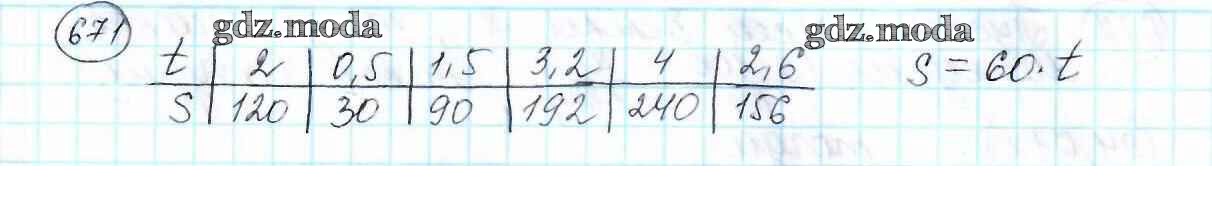 671 gdz.moda gdz.moda
t 2 0,5 1,5 3,2 4 2,6 s = 60·t
S 120 30 90 192 240 156